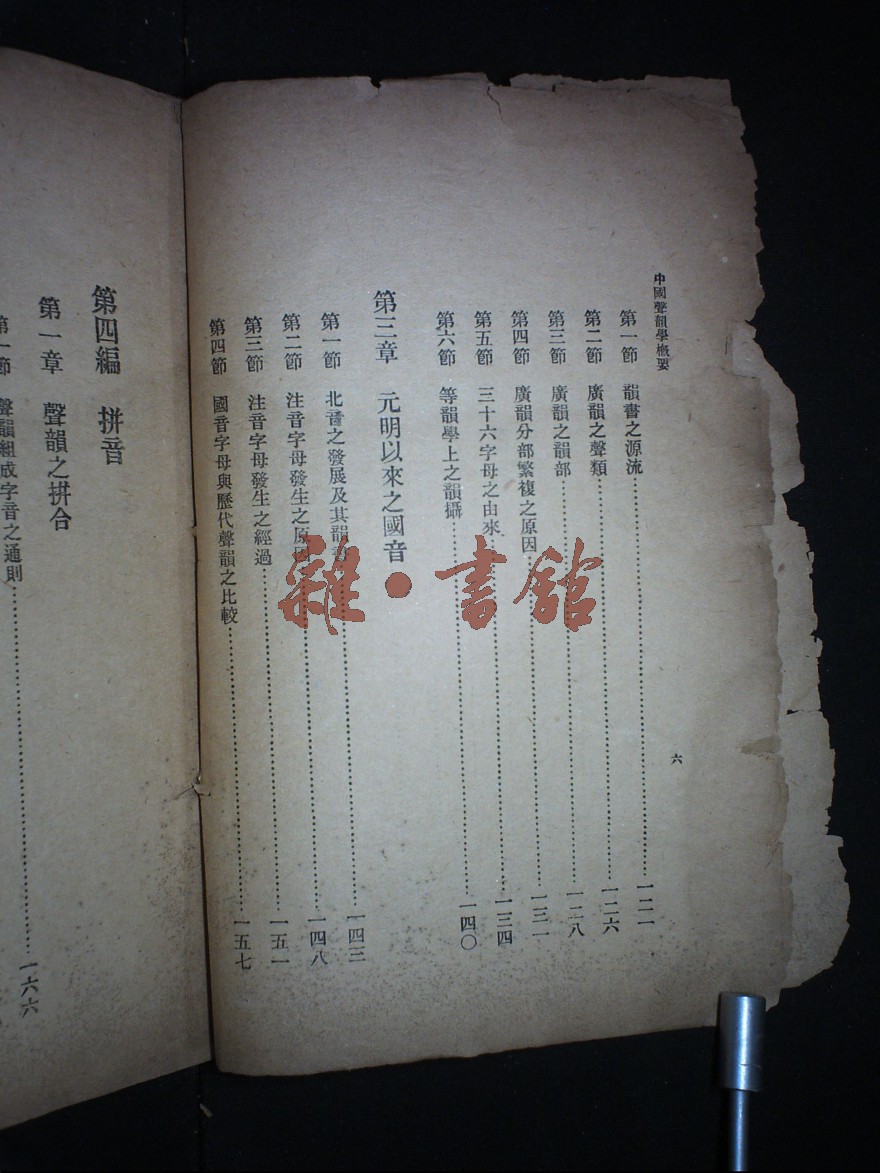 中國聲韻學槪要
第一節 韻書之源流……一二一
第二節 廣韻之聲類……一二六
第三節 廣韻之韻部……一二八
第四節 廣韻分部繁複之原因……一三一
第五節 三十六字母之由來……一三四
第六節 等韻學上之韻攝……一四〇
第三章 元明以來之國音
第一節 北音之發展及其韻……一四三
第二節 注音字母發生之原因……一四八
第三節 注音字母發生之經過……一五一
第四節 國音字母與歷代聲韻之比較……一五七
六
第四編 拼音
第一章 聲韻之拼合
第一節 聲韻組成字音之通則……一六六
雜·書館